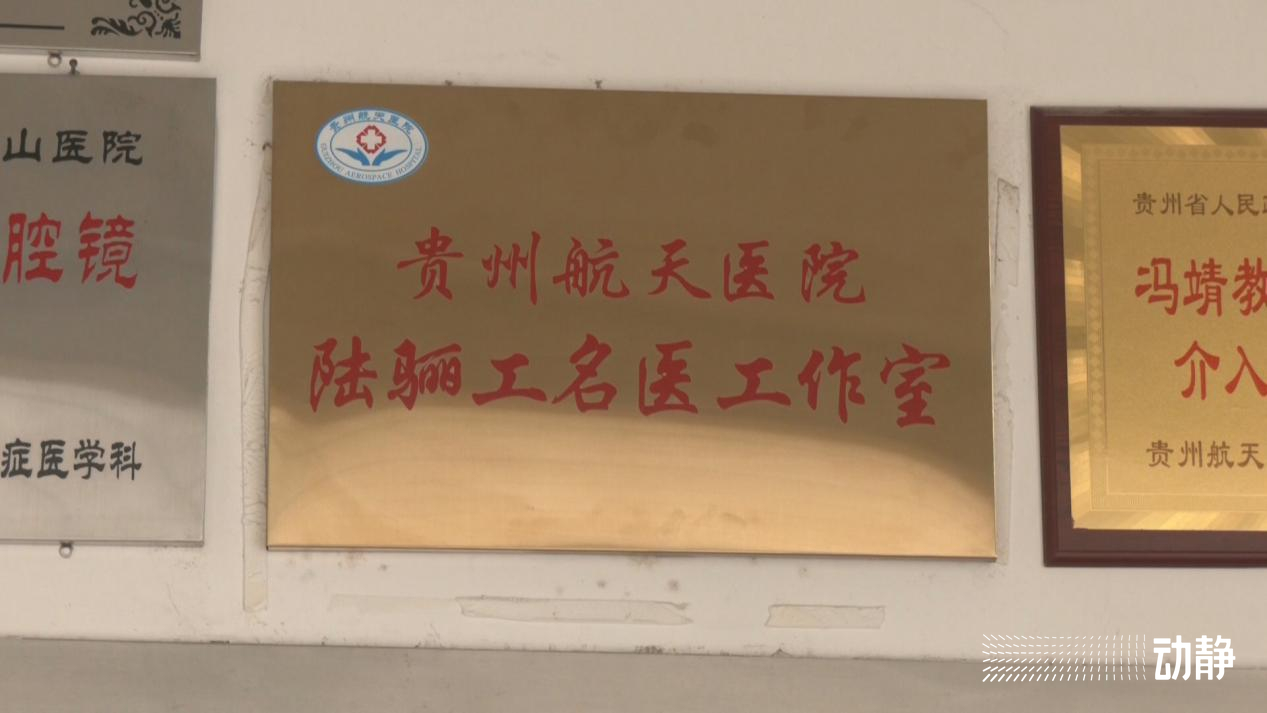 山医院
腔镜
症医学科
贵州航天医院
GUIZHOU AEROSPACE HOSPITAL
贵州航天医院
陆骊工名医工作室
贵州省人民
冯靖教
介入
贵州航天
动静